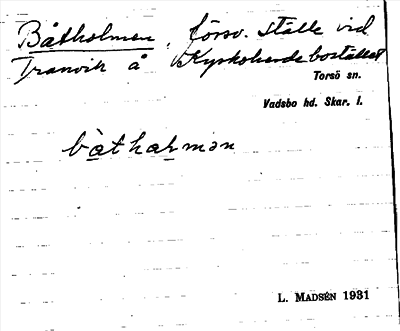 Båtholmen, försv. ställe vid
Tranvik å Kyrkoherdebostället
Torsö sn.
Vadsbo hd. Skar. l.
båtholmən
L. MADSÉN 1931